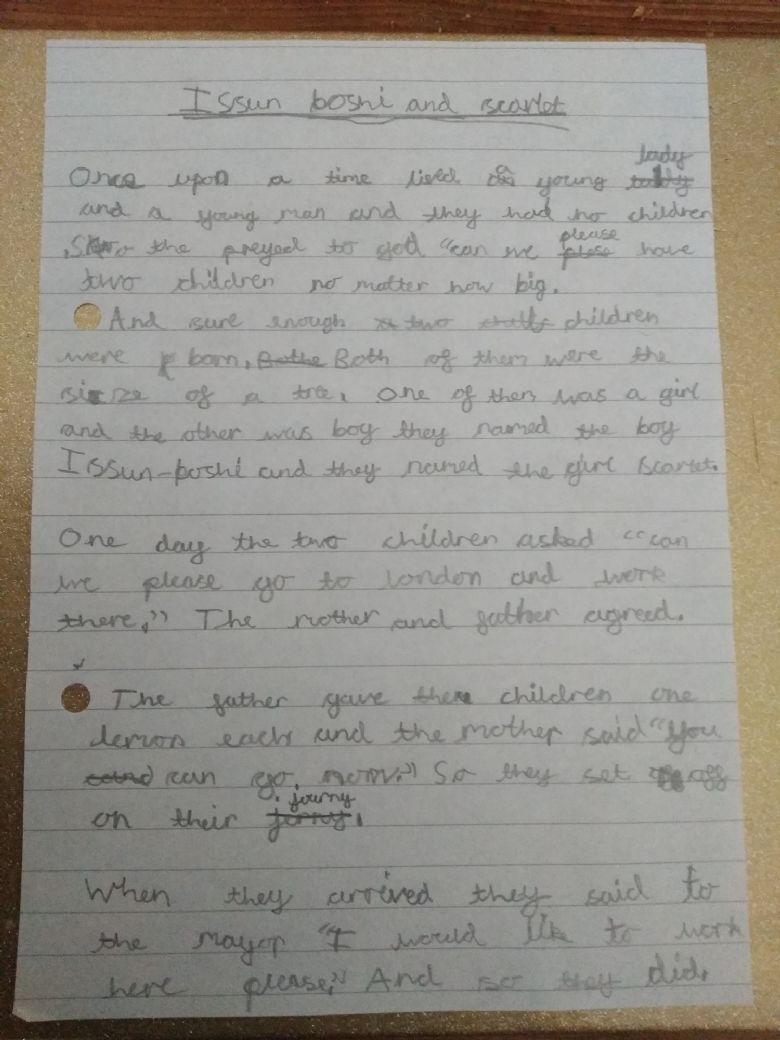 Issun boshi and scarlet
Once upon a time lived a young lady
and a young man and they had no children
. So the preyed to god "can we please have
two children no matter how big.
And sure enough two children
were born. Both of them were the
size of a tree. One of them was a girl
and the other was boy they named the boy
Issun-boshi and they named the girl scarlet.
One day the two children asked "can
we please go to london and work
there," The mother and father agreed.
The father gave there children one
lemon each and the mother said "You
can go. now." So they set off
on their journy.
When they arrived they said to
the mayor "I would like to work
here please," And so they did.